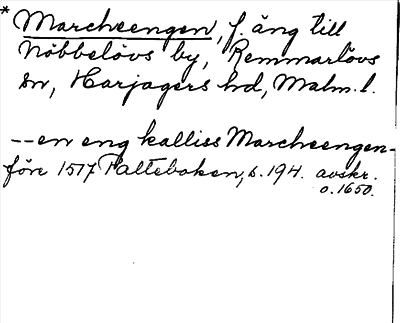 * Marcheengen, f. äng till
Nöbbelövs by, Remmarlövs
sn, Harjagers hd, Malm. l.
-- en eng kalliss Marcheengen-
före 1517 Falteboken, s. 194. avskr.
o. 1650.